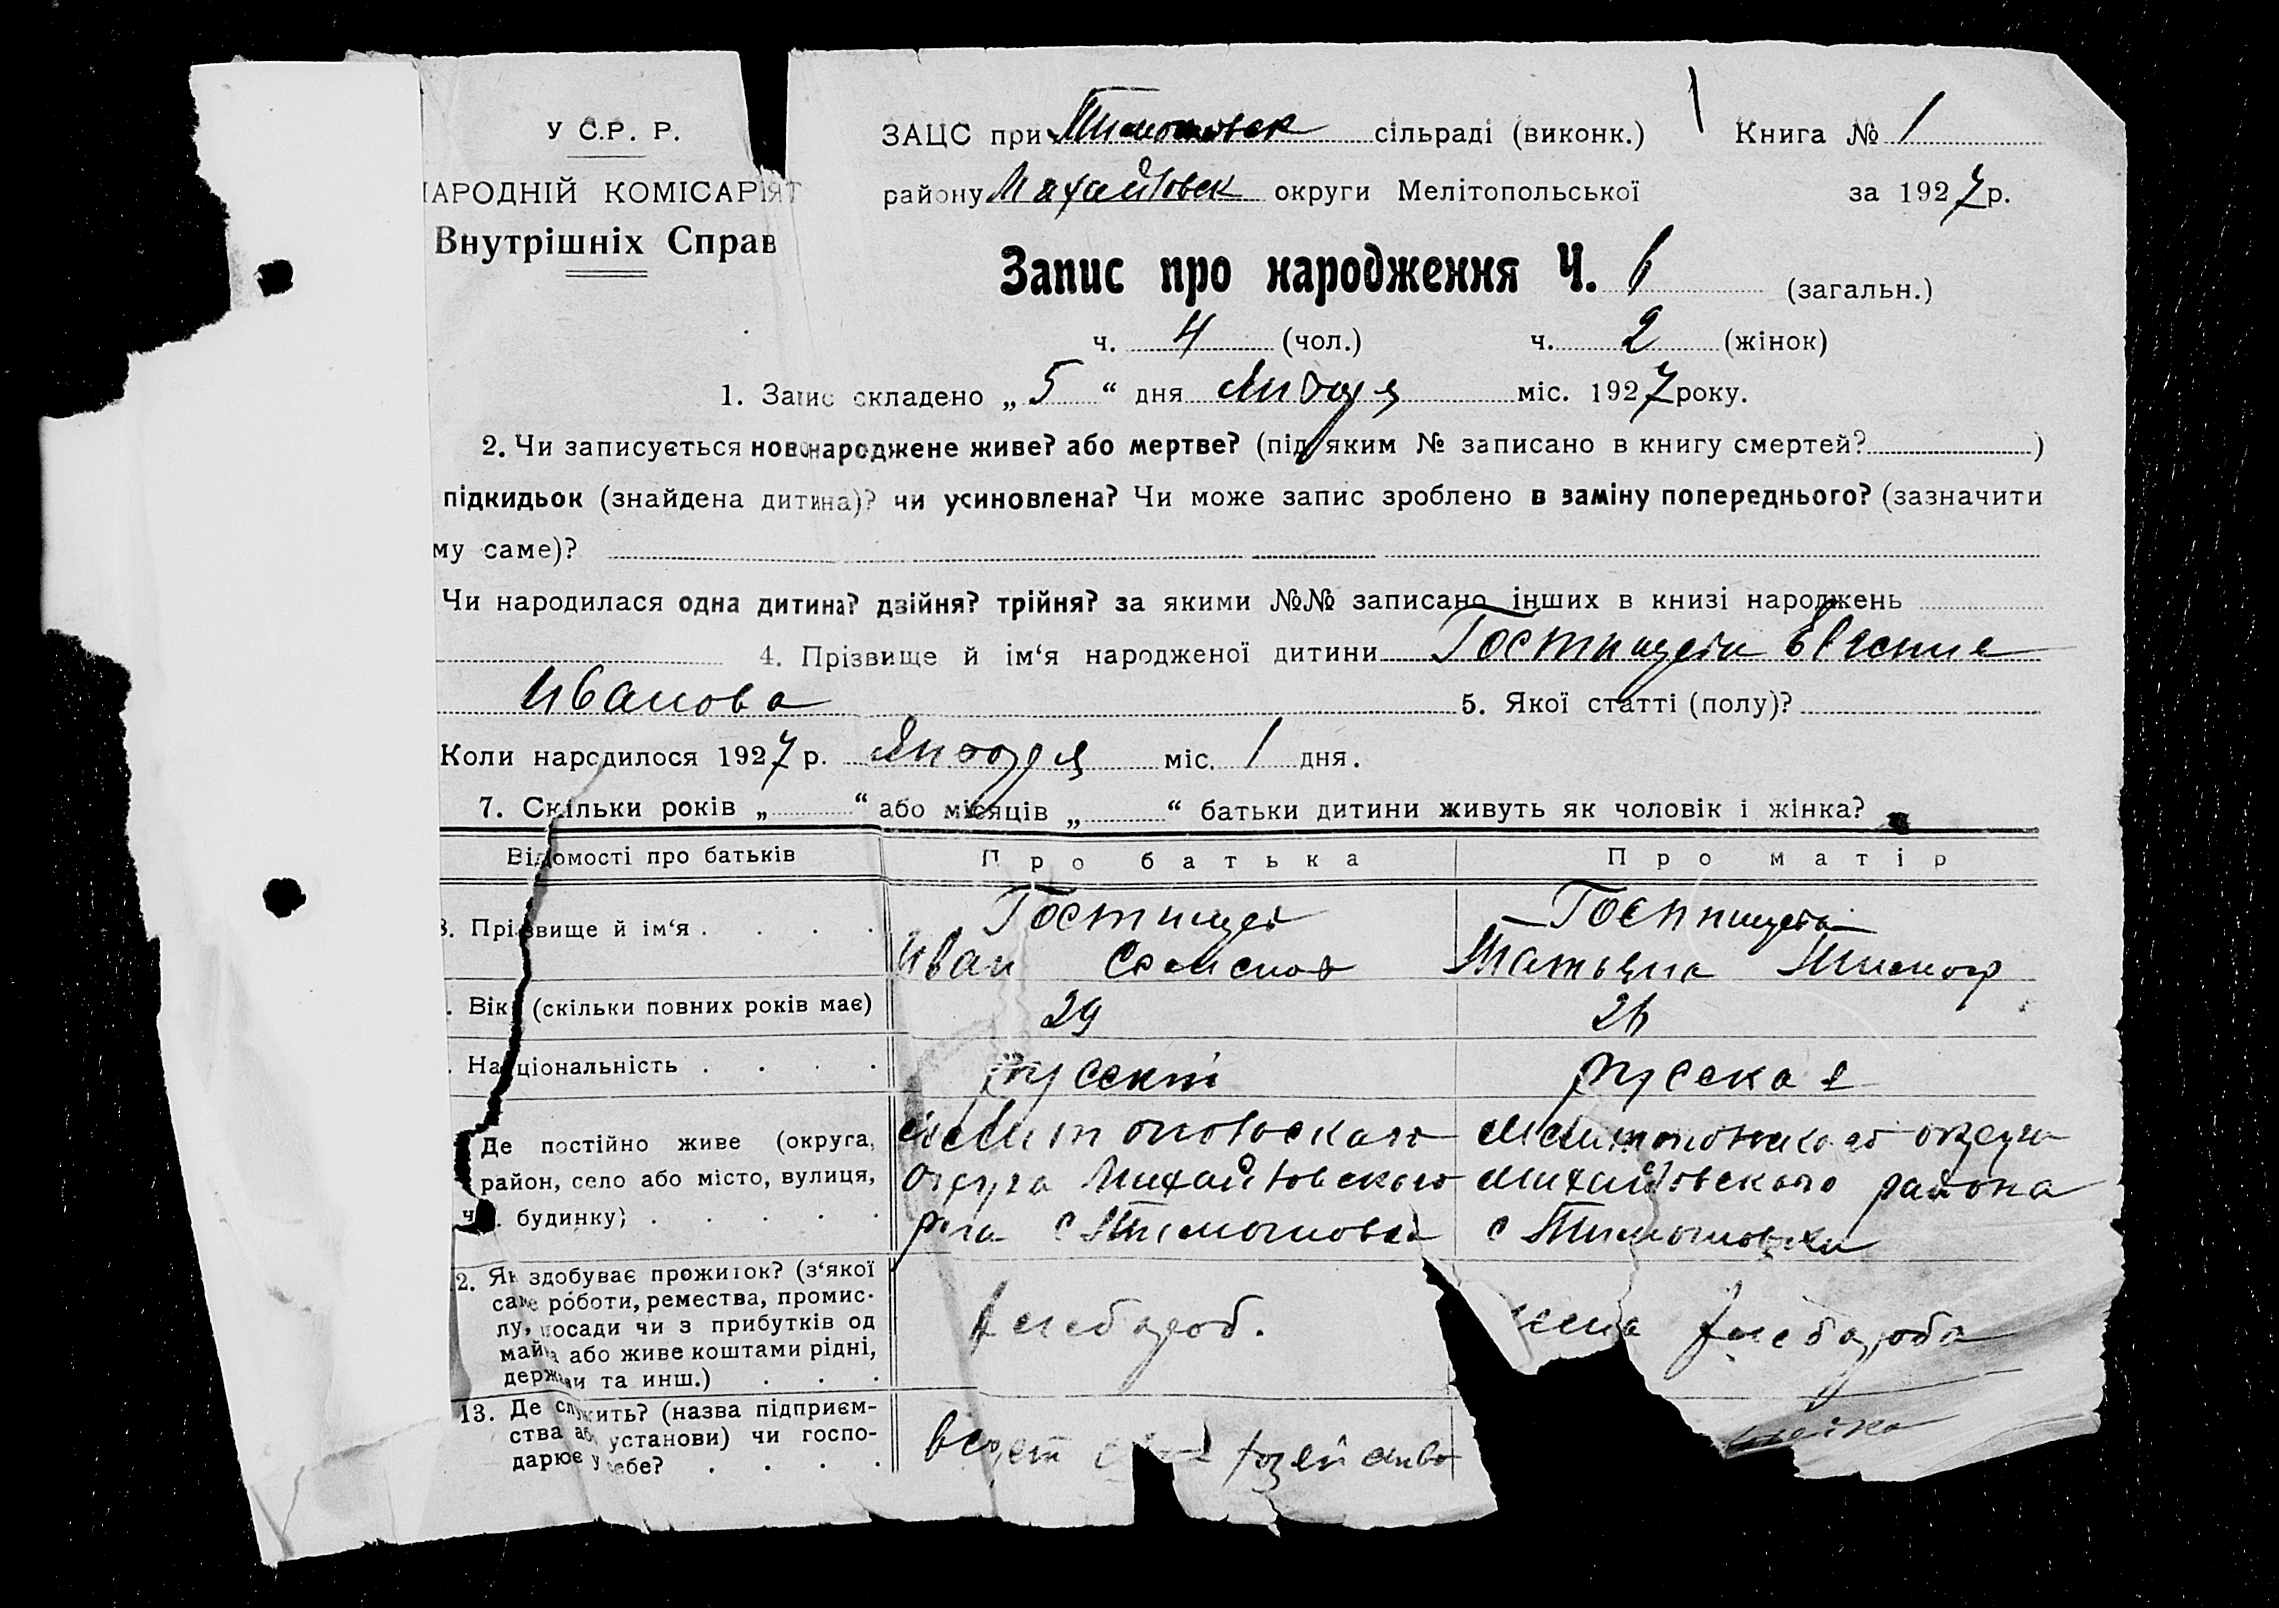 У С.Р. Р.
ЗАЦС при Тимошовск сільраді (виконк.) Книга № 1
НАРОДНІЙ КОМІСАРІЯТ
району Михайловск округи Мелітопольської за 1927 р.
Внутрішніх Справ
Запис про народження Ч. 6 (загальн.)
ч. 4 (чол.) ч. 2 (жінок)
1. Запис складено „ 5 “ дня Января міс. 1927 року.
2. Чи записується новонароджене живе? або мертве? (під яким № записано в книгу смертей? )
підкидьок (знайдена дитина)? чи усиновлена? Чи може запис зроблено в заміну попереднього? (зазначити
му саме)?
Чи народилася одна дитина? двійня? трійня? за якими №№ записано інших в книзі народжень
4. Прізвище й ім‘я народженої дитини Гостищева Евгения
Иванова 5. Якої статті (полу)?
Коли народилося 1927 р. Января міс. 1 дня.
7. Скільки років „ “ або місяців „ “ батьки дитини живуть як чоловік і жінка?
Відомості про батьків Про батька Про матір
8. Прізвище й ім‘я . . . .
Гостищев
Иван Семенов
Гостищева
Татьяна Тимоф
Вік (скільки повних років має) 29 26
Національність . . . . русский русская
Де постійно живе (округа,
район, село або місто, вулиця,
ч. будинку) . . . . .
Мелитопольского
округа Михайловского
р-на с Тимошовка
Мелитопольского округа
Михайловского района
с Тимошовки
2. Як здобуває прожиток? (з‘якої
саме роботи, ремества, промис-
лу, посади чи з прибутків од
майна або живе коштами рідні,
держави та инш.) . . .
хлебороб.
жена хлебороба
13. Де служить? (назва підприєм-
ства або установи) чи госпо-
дарює у себе? . . . .
ведет хозяйство